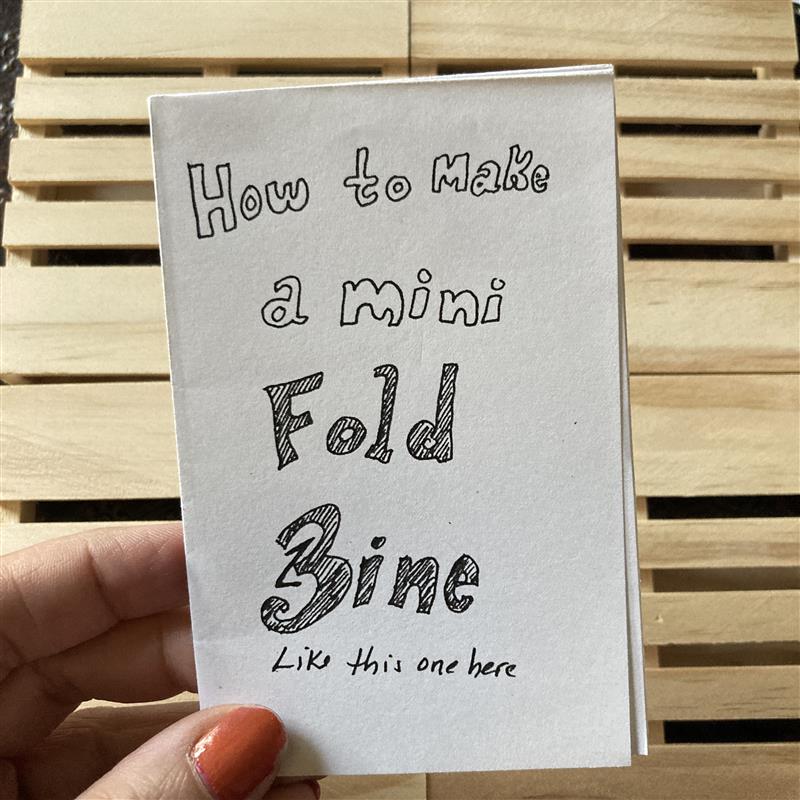 How to Make
a mini
Fold
Zine
Like this one here